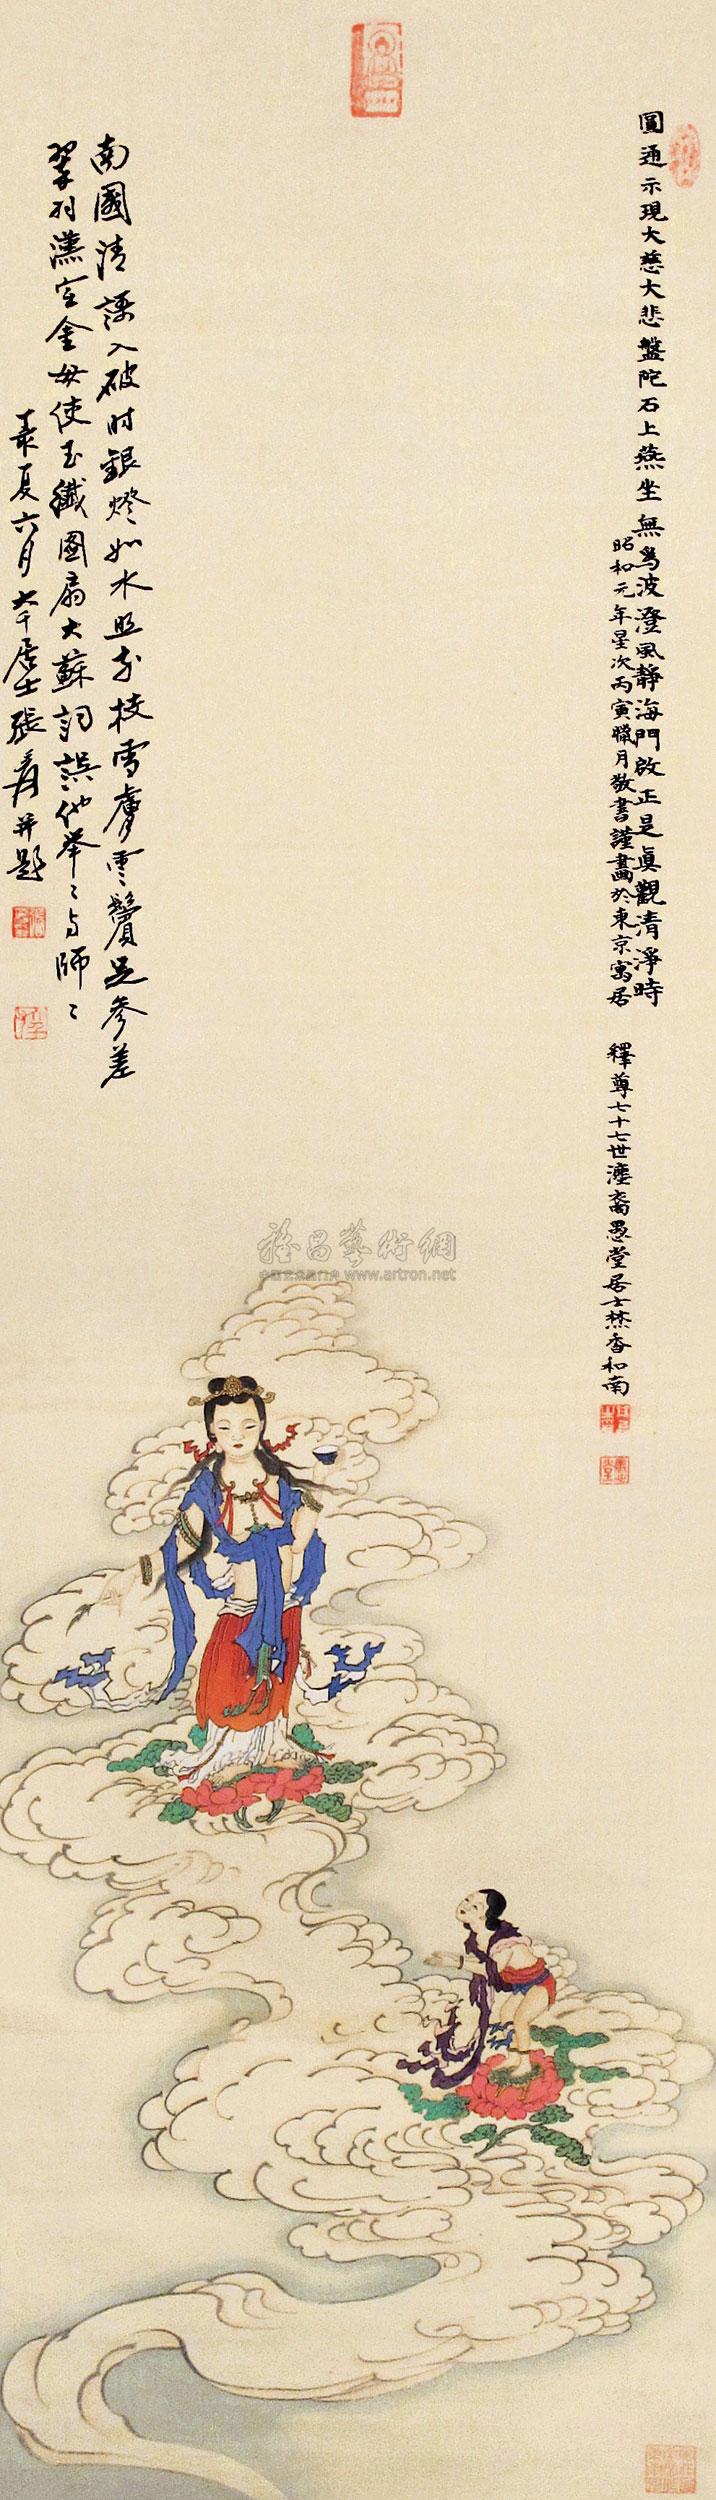 圓通示現大慈大悲盤陀石上燕坐無為波澄風靜海門啟正是真觀清淨時
昭和元年星次丙寅臘月敬書謹畫於東京寓居
釋尊七十七世瀍裔愚堂居士焚香和南
南國清謌入破時銀燈如水照
枝雪膚雲鬢足參差
翠羽漢宮金母使玉纖團扇大蘇詞誤他舉〻與師〻
夏六月大千居士張爰并題
雅昌藝術網
www.artron.net